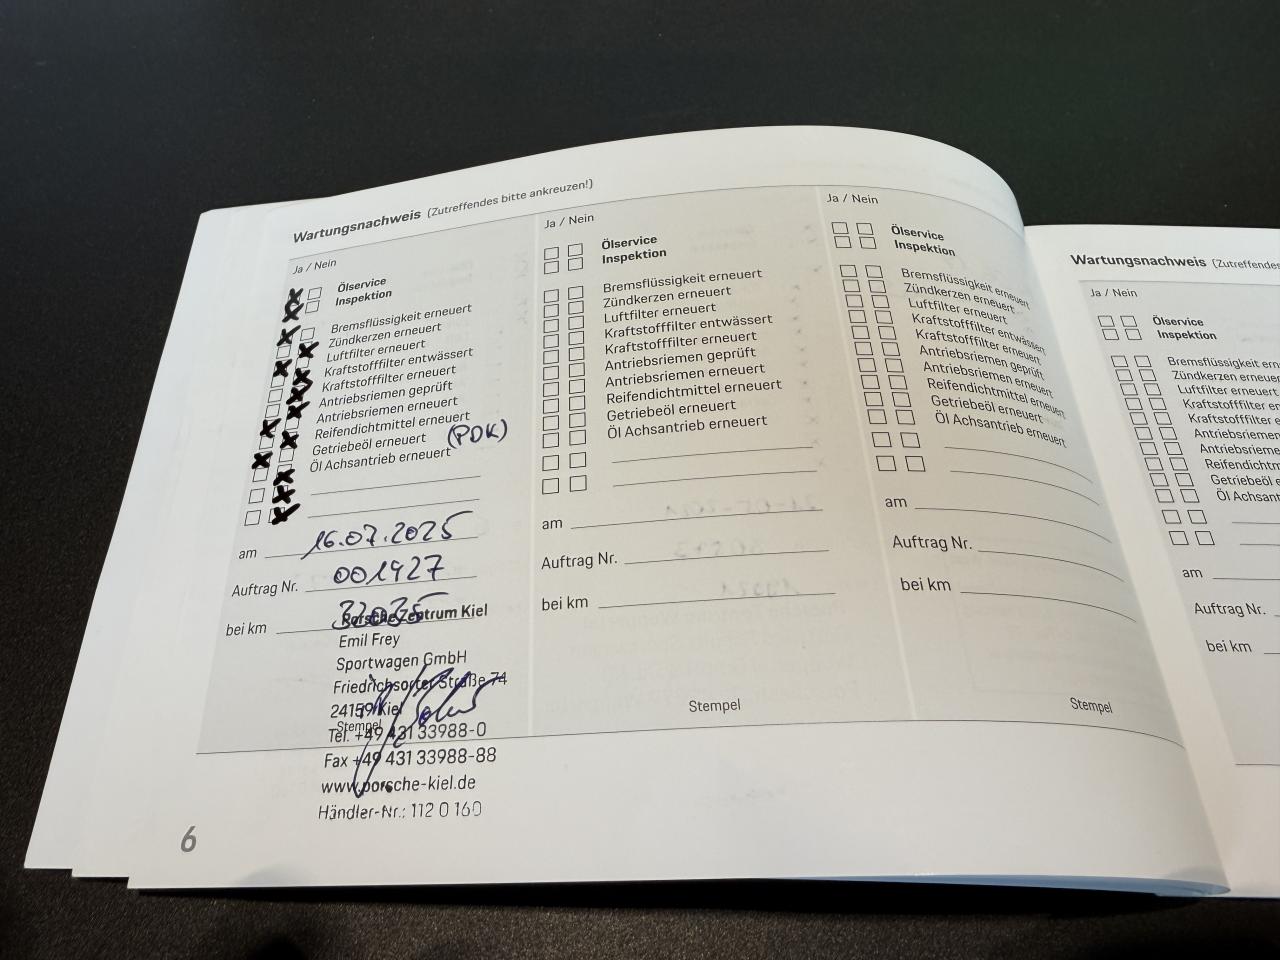 Wartungsnachweis (Zutreffendes bitte ankreuzen!)
Ja / Nein
Ölservice
Inspektion
Bremsflüssigkeit erneuert
Zündkerzen erneuert
Luftfilter erneuert
Kraftstofffilter entwässert
Kraftstofffilter erneuert
Antriebsriemen geprüft
Antriebsriemen erneuert
Reifendichtmittel erneuert
Getriebeöl erneuert (PDK)
Öl Achsantrieb erneuert
am 16.07.2025
Auftrag Nr. 001427
bei km 32035
Porsche Zentrum Kiel
Emil Frey
Sportwagen GmbH
Friedrichsorter Straße 74
24159 Kiel
Stempel
Tel. +49 431 33988-0
Fax +49 431 33988-88
www.porsche-kiel.de
Händler-Nr.: 112 0 160
6
Ja / Nein
Ölservice
Inspektion
Bremsflüssigkeit erneuert
Zündkerzen erneuert
Luftfilter erneuert
Kraftstofffilter entwässert
Kraftstofffilter erneuert
Antriebsriemen geprüft
Antriebsriemen erneuert
Reifendichtmittel erneuert
Getriebeöl erneuert
Öl Achsantrieb erneuert
am
Auftrag Nr.
bei km
Stempel
Ja / Nein
Ölservice
Inspektion
Bremsflüssigkeit erneuert
Zündkerzen erneuert
Luftfilter erneuert
Kraftstofffilter entwässert
Kraftstofffilter erneuert
Antriebsriemen geprüft
Antriebsriemen erneuert
Reifendichtmittel erneuert
Getriebeöl erneuert
Öl Achsantrieb erneuert
am
Auftrag Nr.
bei km
Stempel
Wartungsnachweis (Zutreffendes
Ja / Nein
Ölservice
Inspektion
Bremsflüssigkeit ern
Zündkerzen erneuer
Luftfilter erneuert
Kraftstofffilter en
Kraftstofffilter e
Antriebsriemen
Antriebsrieme
Reifendichtm
Getriebeöl e
Öl Achsant
am
Auftrag Nr.
bei km